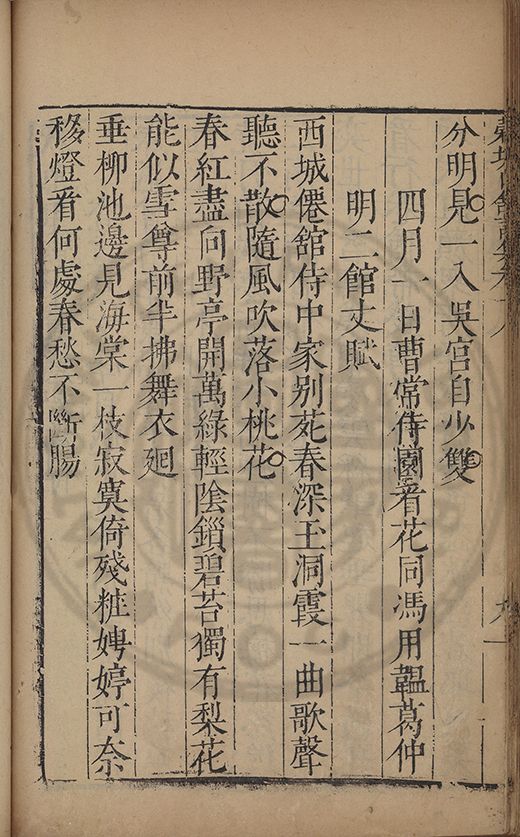 分明見一入吳宮自少雙
四月一日曹常侍園看花同馮用韞葛仲
明二館丈賦
西城僊舘侍中家別苑春深玉洞霞一曲歌聲
聽不散隨風吹落小桃花
春紅盡向野亭開萬綠輕陰鎖碧苔獨有梨花
能似雪尊前半拂舞衣廻
垂柳池邊見海棠一枝寂寞倚殘粧娉婷可奈
移燈看何處春愁不斷腸